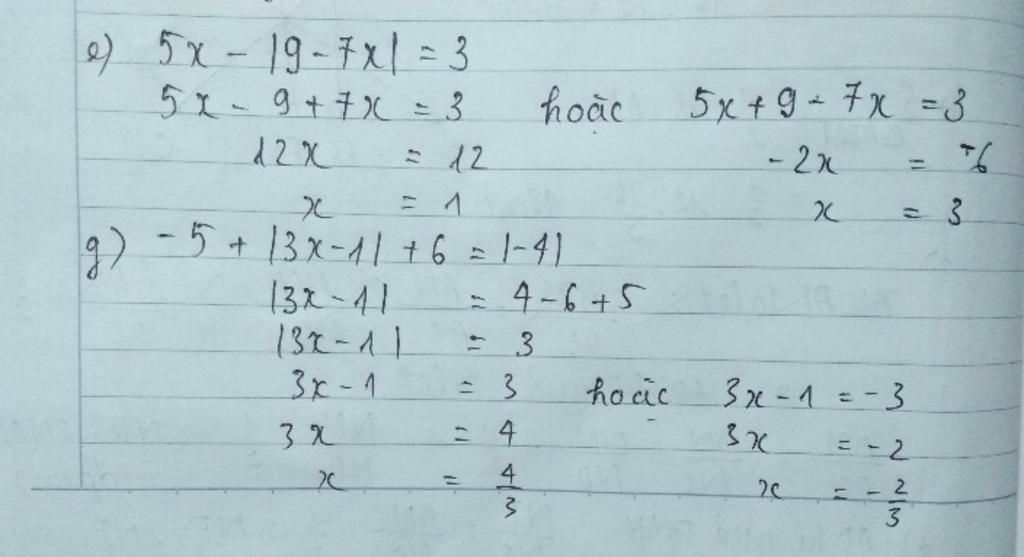 e) 5x - |9 - 7x| = 3
5x - 9 + 7x = 3 hoặc 5x + 9 - 7x = 3
12x = 12 -2x = -6
x = 1 x = 3
g) -5 + |3x - 1| + 6 = |-4|
|3x - 1| = 4 - 6 + 5
|3x - 1| = 3
3x - 1 = 3 hoặc 3x - 1 = -3
3x = 4 3x = -2
x = 4/3 x = -2/3